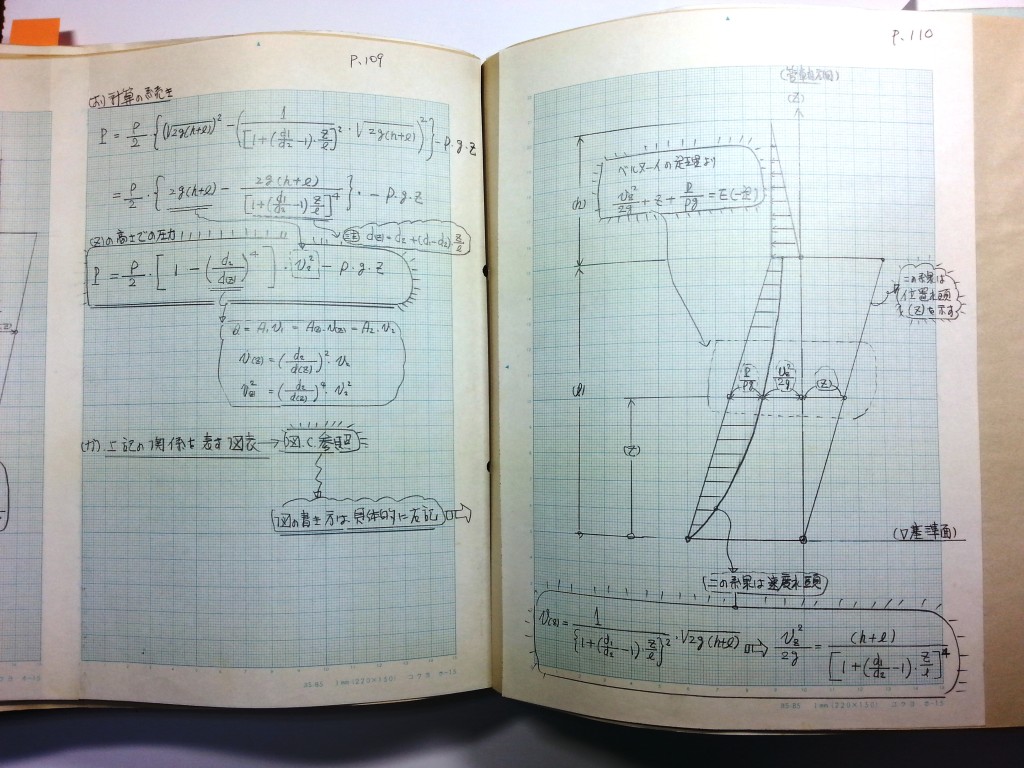 P. 109
(お) 計算の系統を
P = ρ/2 · { (√2g(h+ℓ))² − ( 1/[1+(d1/d2−1)·z/ℓ]² · √2g(h+ℓ) )² } − ρ·g·z
= ρ/2 · { 2g(h+ℓ) − 2g(h+ℓ)/[1+(d1/d2−1)z/ℓ]⁴ } · − ρ·g·z
(z)の高さでの圧力
注 d(z) = d2 + (d1−d2)·z/ℓ
P = ρ/2 · [ 1 − (d2/d(z))⁴ ] · v2² − ρ·g·z
Q = A1·v1 = A(z)·v(z) = A2·v2
v(z) = (d2/d(z))²· v2
v(z)² = (d2/d(z))⁴· v2²
(カ) 上記の関係を表す図表 → 図.C 参照
図の書き方は具体的に右記 ⇨
RS-B5 1mm (220×150) コクヨ ホ-15
P. 110
(z)
ベルヌーイの定理より
vz²/2g + z + P/ρg = E(一定)
(h)
この系界は
位置水頭
(z)を示す
(ℓ)
P/ρg
vz²/2g
(z)
(z)
(▽基準面)
この系界は速度水頭
v(z) = 1/{1+(d1/d2−1)·z/ℓ}² · √2g(h+ℓ) ⇨ vz²/2g = (h+ℓ)/[1+(d1/d2−1)·z/ℓ]⁴
RS-B5 1mm (220×150) コクヨ ホ-15